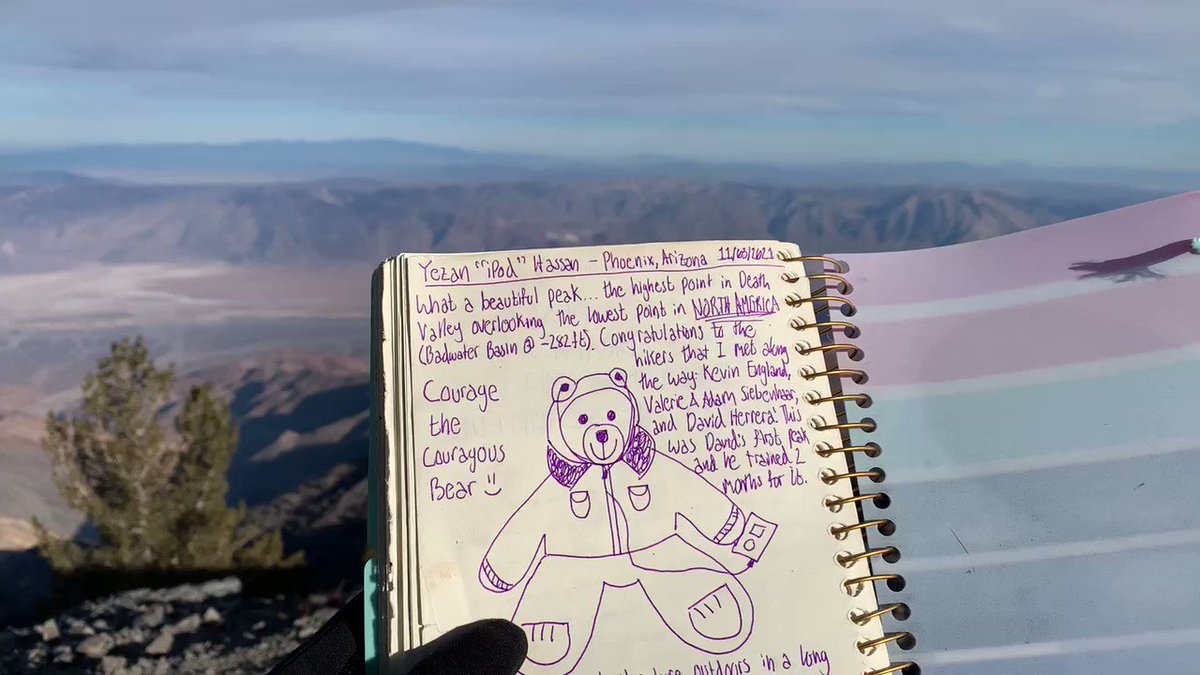 Yezan "iPod" Hassan - Phoenix, Arizona 11/03/2021
What a beautiful peak... the highest point in Death
Valley overlooking the lowest point in NORTH AMERICA
(Badwater Basin @ -282ft). Congratulations to the
hikers that I met along
the way: Kevin England,
Valerie & Adam Siebenhaar,
and David Herrera! This
was David's first peak
and he trained 2
months for it.
Courage
the
Couragous
Bear
outdoors in a long